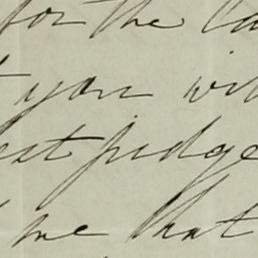 for the la
you wil
est judge
me that